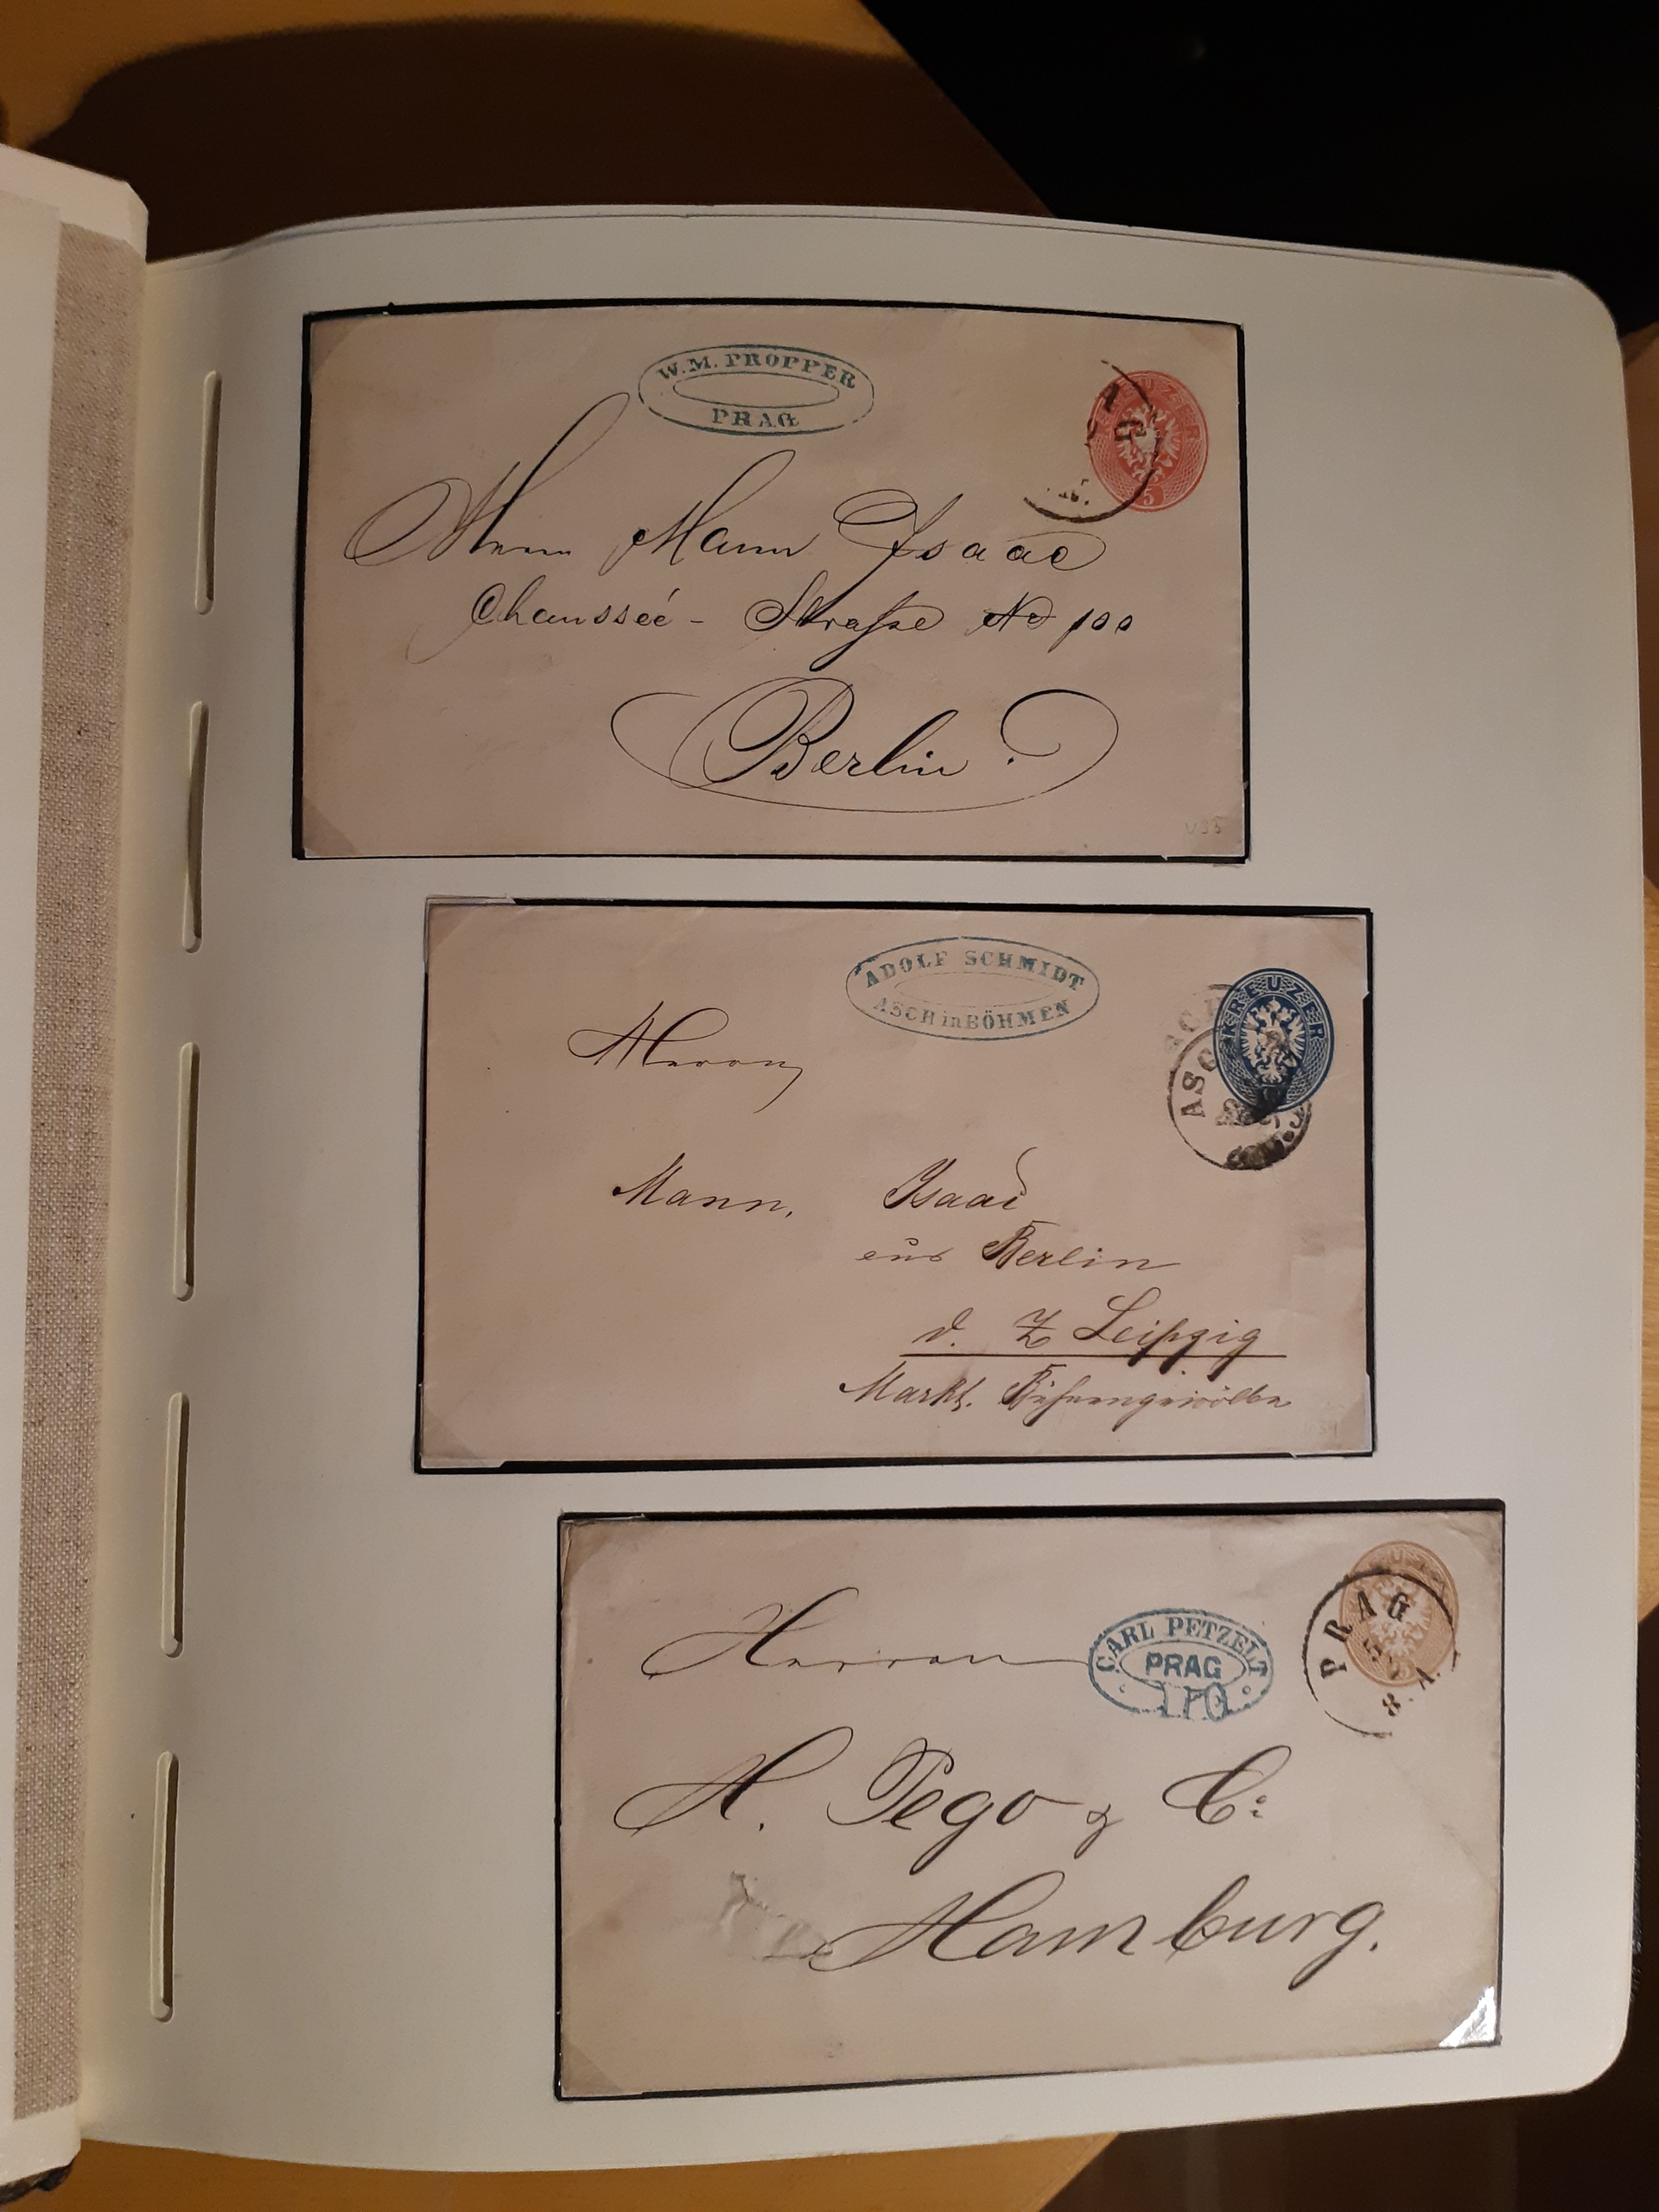 W. M. PROPPER
PRAG
KREUZER
5
Herrn Mann Isaac
Chausseé - Straße No 100
Berlin.
ADOLF SCHMIDT
ASCH in BÖHMEN
KREUZER
ASCH
Herrn
Mann, Isaac
aus Berlin
d. Z Leipzig
Markt.
CARL PETZELT
PRAG
170
PRAG
8. A.
Herren
H. Pego & Co
Hamburg.